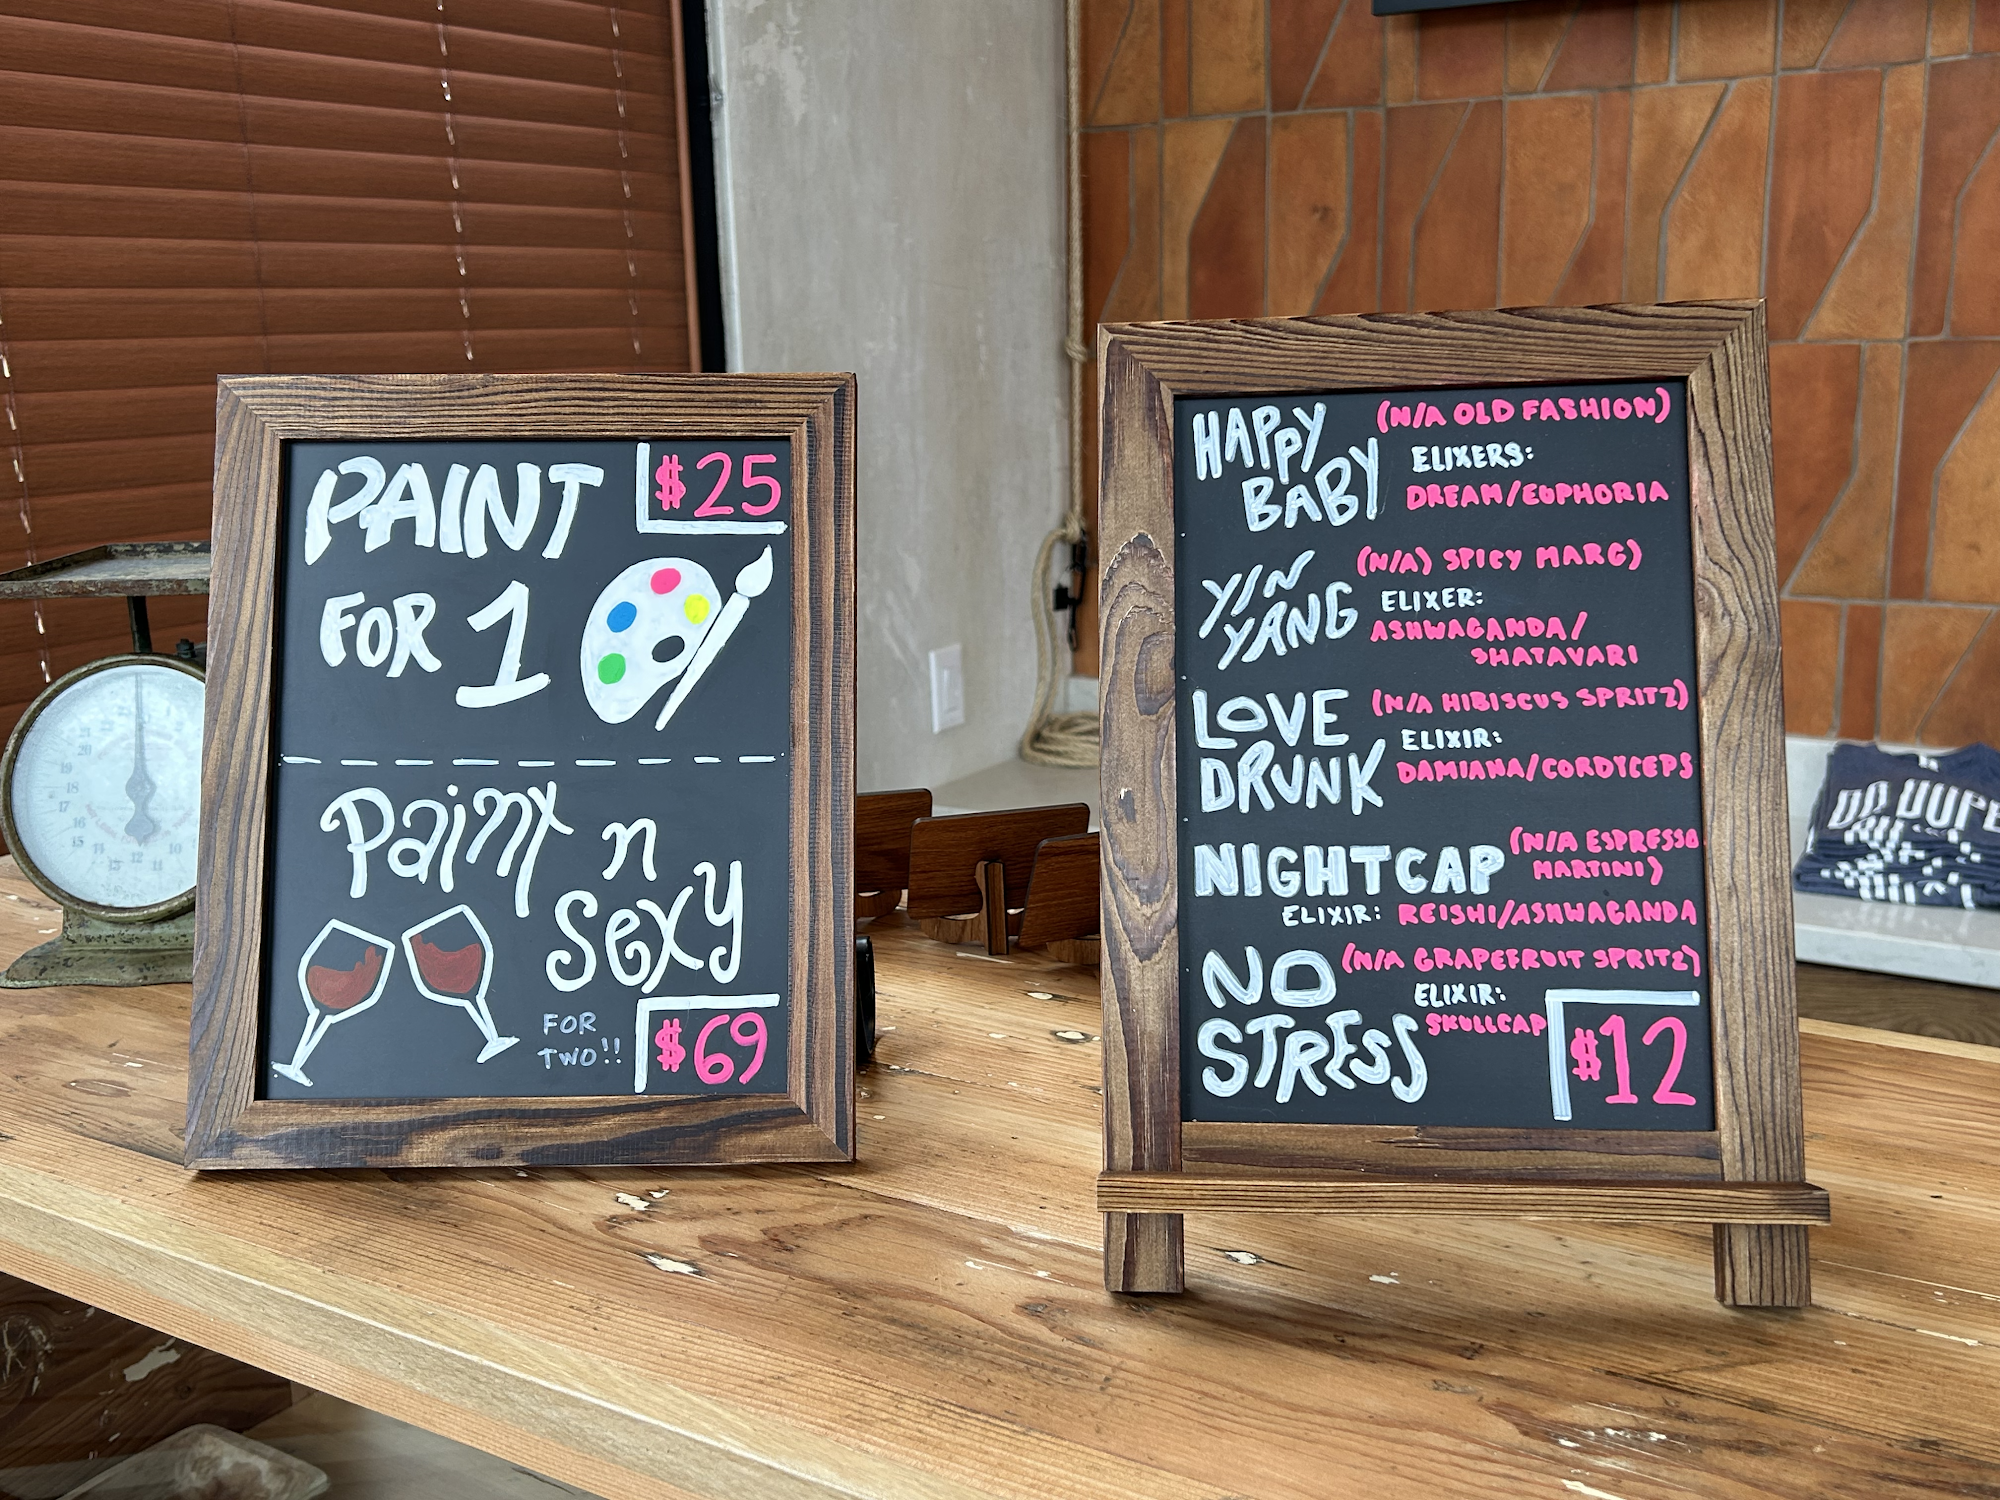 PAINT
FOR 1
$25
Paint n
sexy
FOR
TWO!!
$69
HAPPY
BABY
(N/A OLD FASHION)
ELIXERS:
DREAM/EUPHORIA
YIN
YANG
(N/A) SPICY MARG)
ELIXER:
ASHWAGANDA/
SHATAVARI
LOVE
DRUNK
(N/A HIBISCUS SPRITZ)
ELIXIR:
DAMIANA/CORDYCEPS
NIGHTCAP
(N/A ESPRESSO
MARTINI)
ELIXIR: REISHI/ASHWAGANDA
NO
STRESS
(N/A GRAPEFRUIT SPRITZ)
ELIXIR:
SKULLCAP
$12